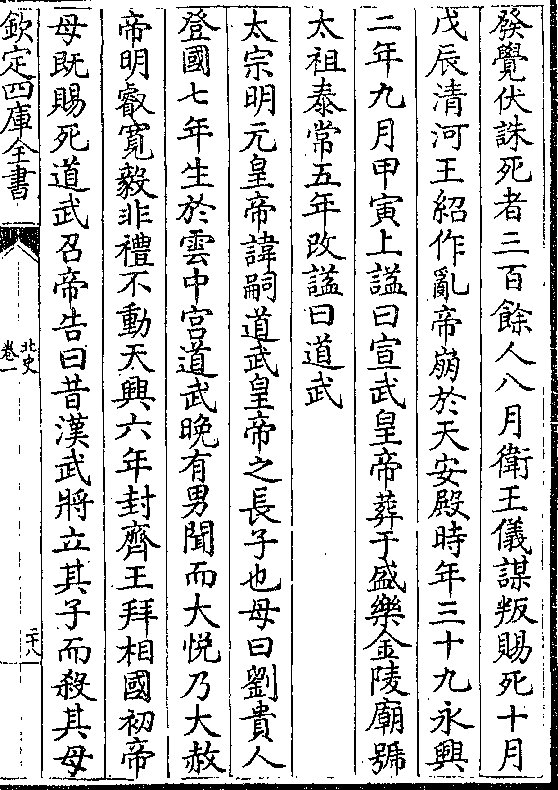 發覺伏誅死者三百餘人八月衛王儀謀叛賜死十月
戊辰清河王紹作亂帝崩於天安殿時年三十九永興
二年九月甲寅上謚曰宣武皇帝葬于盛樂金陵廟號
太祖泰常五年改謚曰道武
太宗明元皇帝諱嗣道武皇帝之長子也母曰劉貴人
登國七年生於雲中宫道武晚有男聞而大悦乃大赦
帝明睿寛毅非禮不動天興六年封齊王拜相國初帝
母既賜死道武召帝告曰昔漢武將立其子而殺其母
欽定四庫全書
北史
卷一
二十八